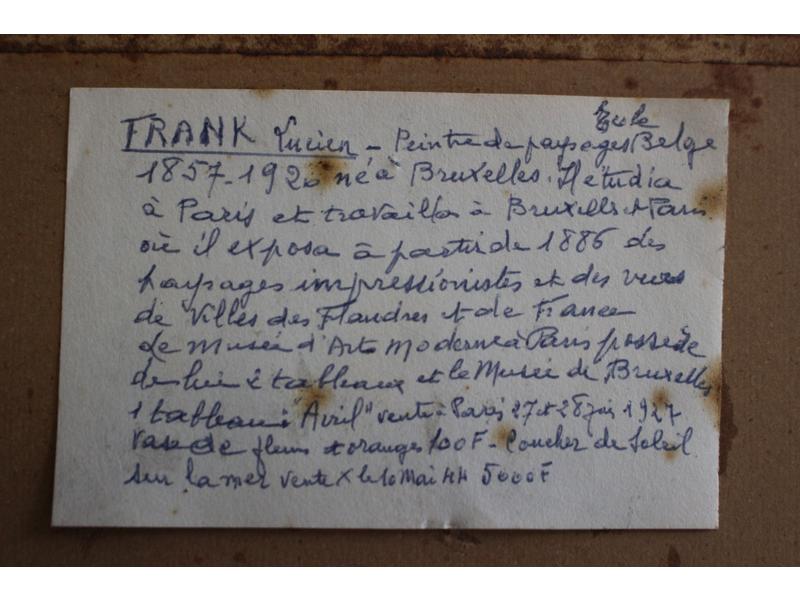 Ecole
FRANK Lucien - Peintre de paysages Belge
1857-1920 né à Bruxelles. Il étudia
à Paris et travailla à Bruxelles et Paris
où il exposa à partir de 1886 des
paysages impressionistes et des vues
de Villes des Flandres et de France
Le Musée d'Arts Moderne à Paris possède
de lui 2 tableaux et le Musée de Bruxelles
1 tableau: "Avril" vente à Paris 27 et 28 1927
vase de fleurs et oranges 100F - Coucher de Soleil
sur la mer vente X le 10 Mai 44 5000F